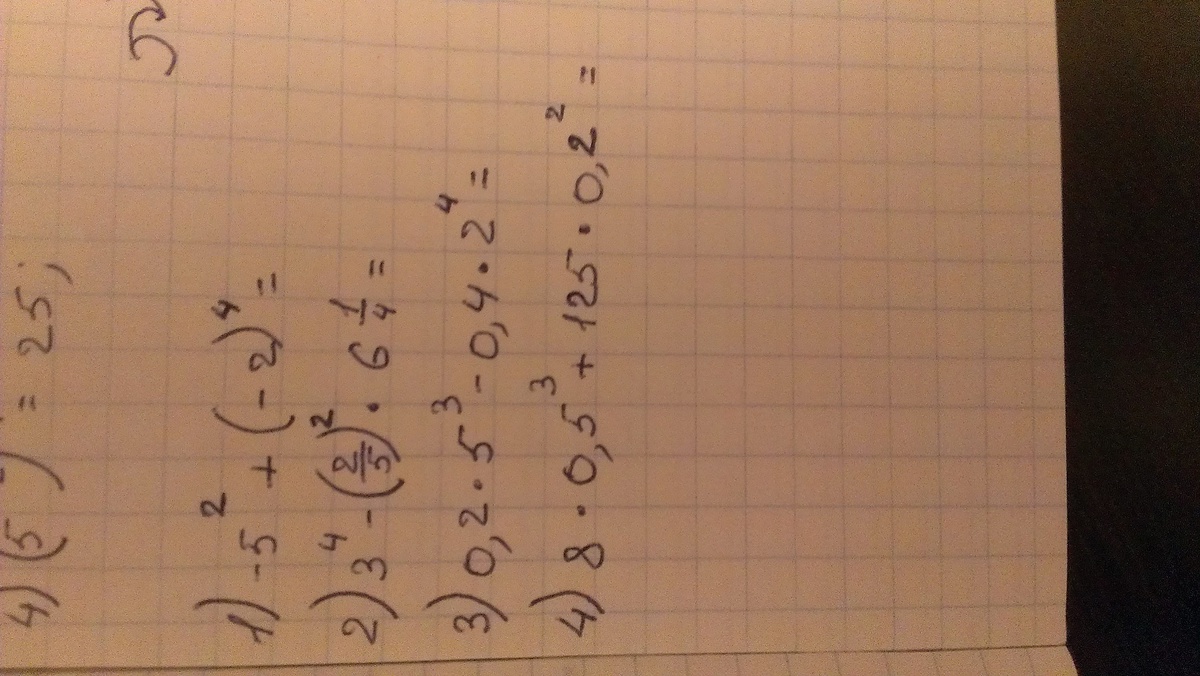 4) (5²) = 25;
1) -5² + (-2)⁴ =
2) 3⁴ - (2/5)² · 6 1/4 =
3) 0,2 · 5³ - 0,4 · 2⁴ =
4) 8 · 0,5³ + 125 · 0,2² =